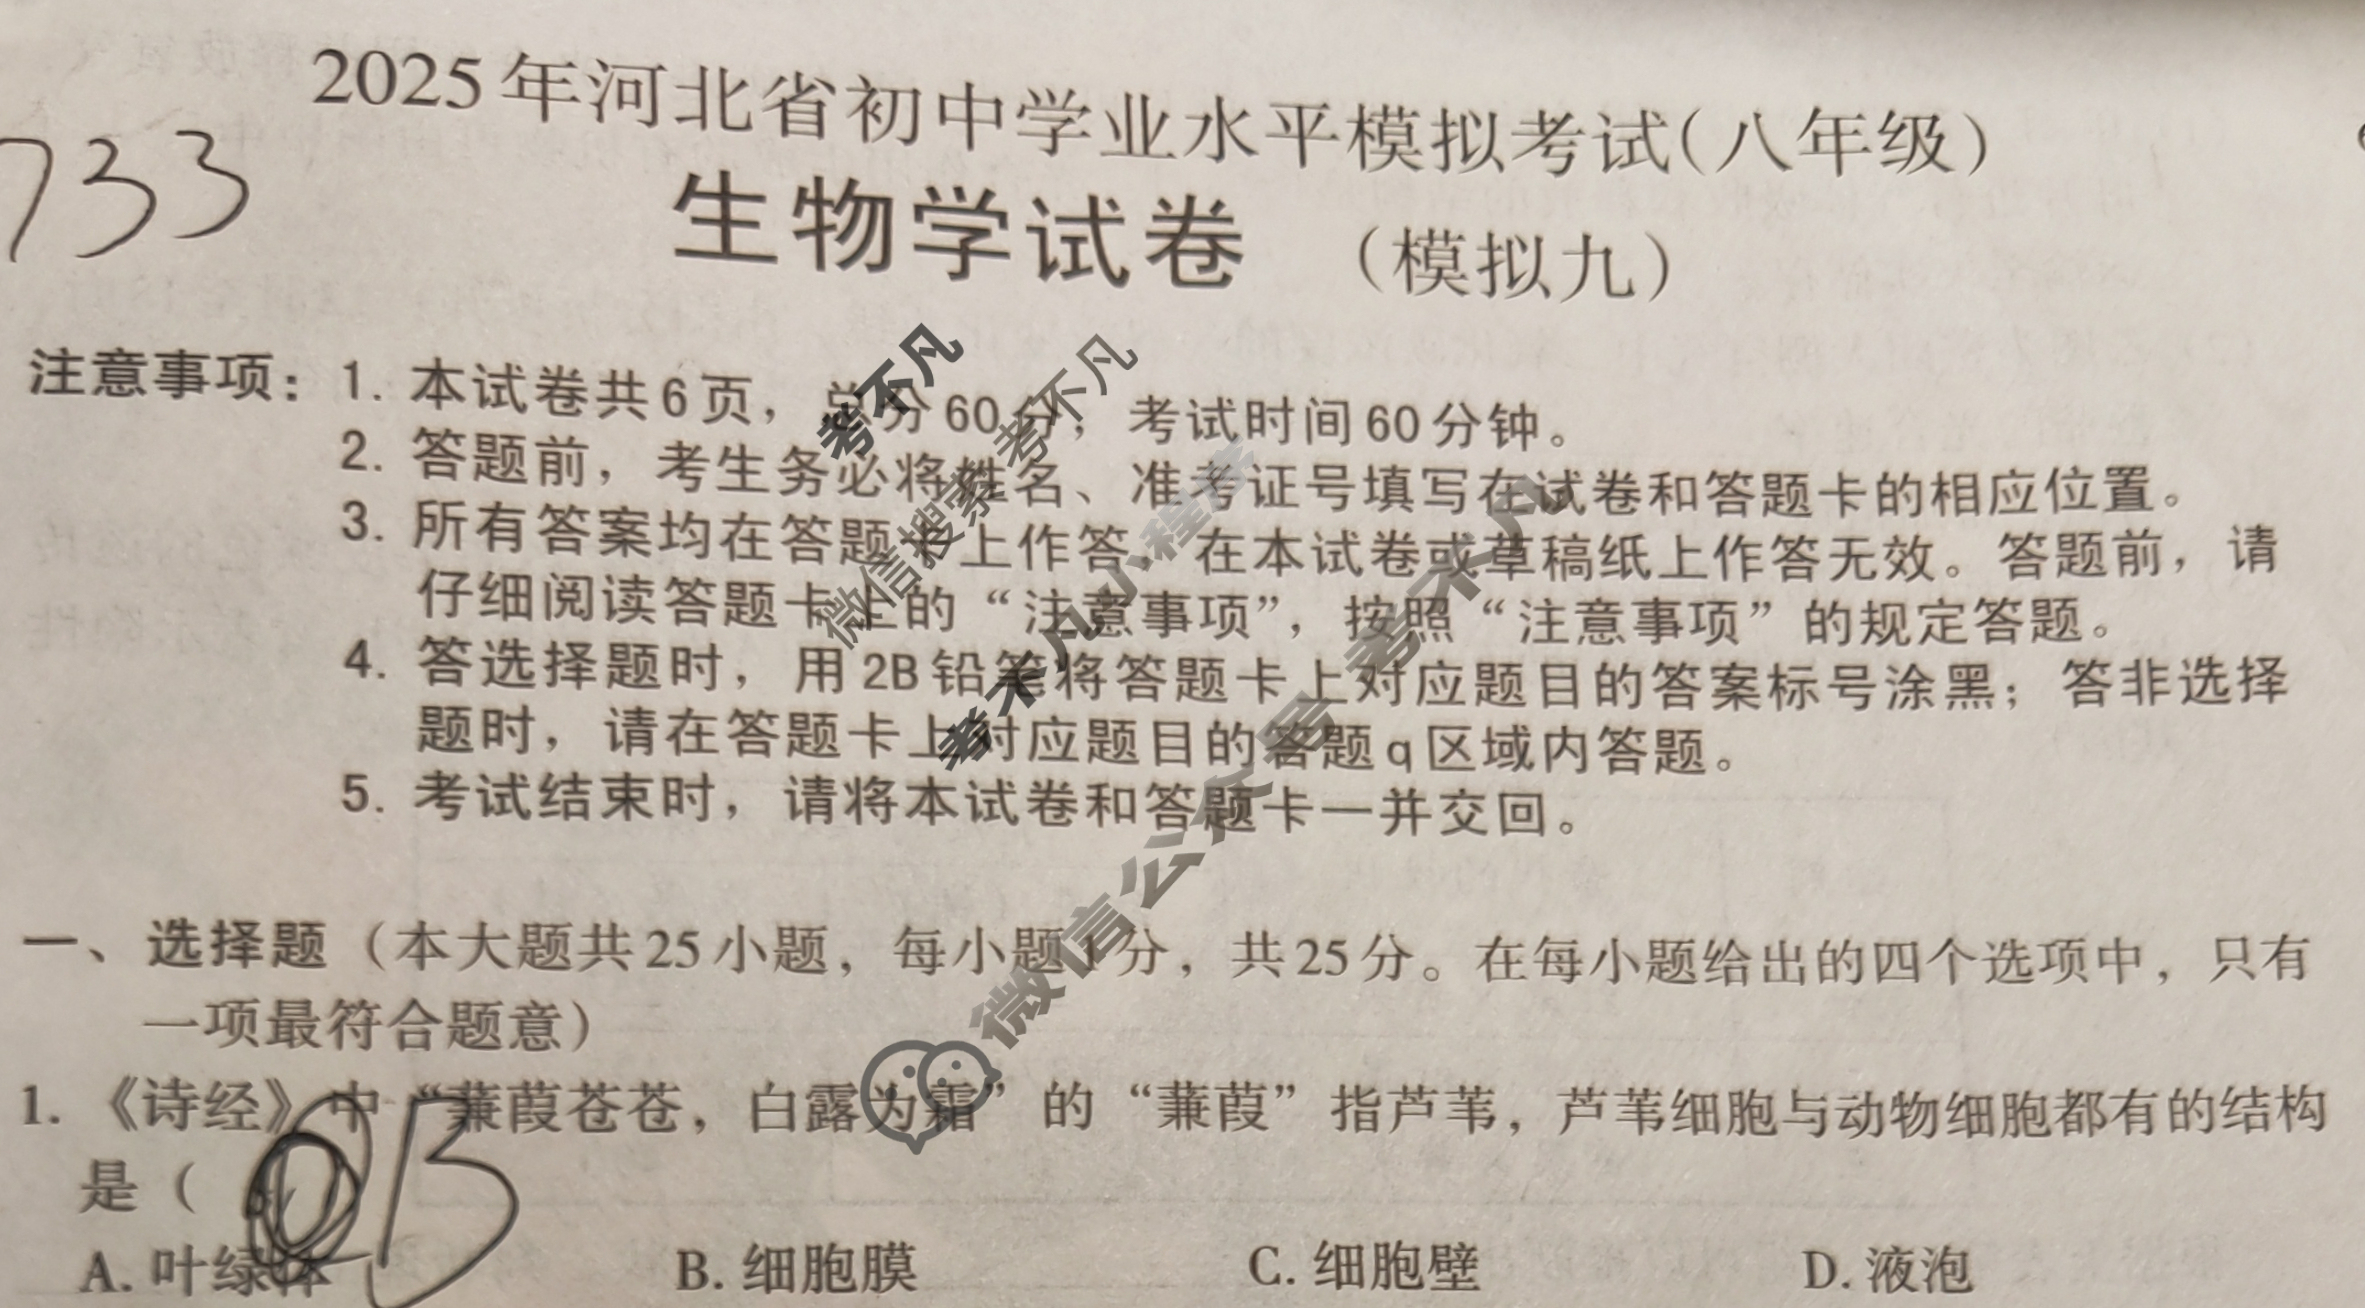 2025年河北省初中学业水平模拟考试(八年级)
733
生物学试卷 (模拟九)
注意事项：1. 本试卷共6页，总分60分，考试时间60分钟。
2. 答题前，考生务必将姓名、准考证号填写在试卷和答题卡的相应位置。
3. 所有答案均在答题卡上作答，在本试卷或草稿纸上作答无效。答题前，请
仔细阅读答题卡上的“注意事项”，按照“注意事项”的规定答题。
4. 答选择题时，用2B铅笔将答题卡上对应题目的答案标号涂黑；答非选择
题时，请在答题卡上对应题目的答题q区域内答题。
5. 考试结束时，请将本试卷和答题卡一并交回。
考不凡
微信搜索 考不凡
考不凡小程序
微信公众号 考不凡
一、选择题（本大题共25小题，每小题1分，共25分。在每小题给出的四个选项中，只有
一项最符合题意）
1.《诗经》中“蒹葭苍苍，白露为霜”的“蒹葭”指芦苇，芦苇细胞与动物细胞都有的结构
是（ B
A. 叶绿体 B. 细胞膜 C. 细胞壁 D. 液泡